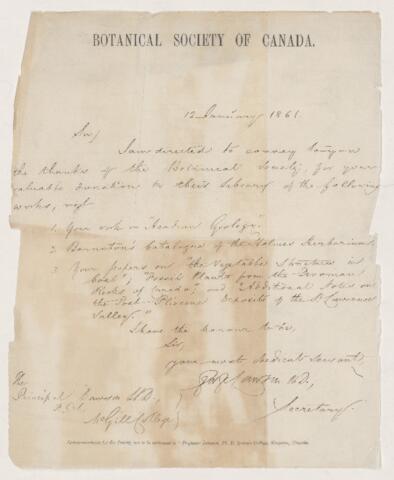 BOTANICAL SOCIETY OF CANADA.
12 January 1861
Sir,
I am directed to convey to you
the thanks of the Botanical Society, for your
valuable donation to their Library of the following
works, viz
1. Your work on "Acadian Geology".
2. Barnston's Catalogue of the Holmes Herbarium.
3. Your papers on "the Vegetable Structures in
Coal"; "Fossil Plants from the Devonian
Rocks of Canada"; and "Additional Notes on
the Post-Pliocene Deposits of the St Lawrence
Valley."
I have the honour to be,
Sir,
your most obedient servant
Lawson
Secretary.
The
Principal Dawson LL.D.,
McGill College
Communications for the Society are to be addressed to "Professor Lawson, Ph. D. Queen's College, Kingston, Canada.